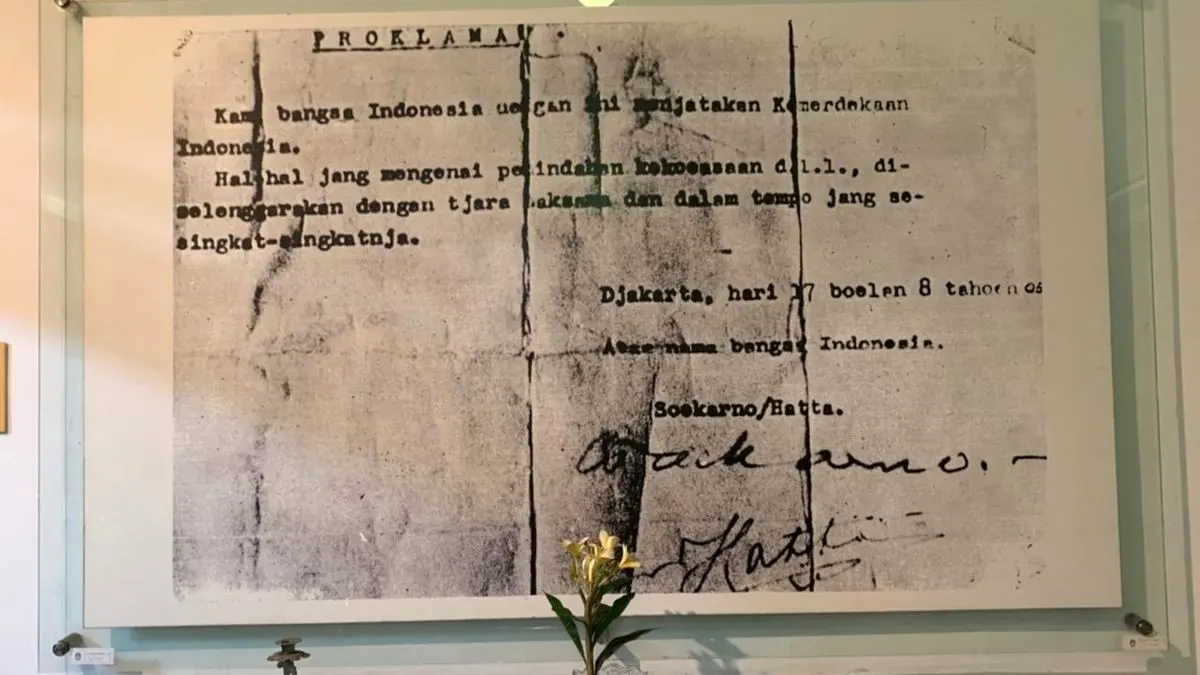 PROKLAMASI
Kami bangsa Indonesia dengan ini menjatakan Kemerdekaan
Indonesia.
Hal2 jang mengenai pemindahan kekoeasaan d.l.l., di-
selenggarakan dengan tjara saksama dan dalam tempo jang se-
singkat-singkatnja.
Djakarta, hari 17 boelan 8 tahoen 05
Atas nama bangsa Indonesia.
Soekarno/Hatta.
Soekarno.
Hatta